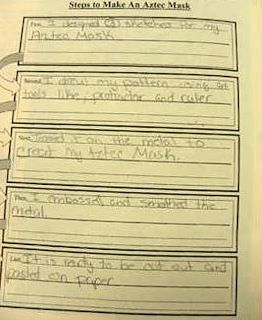 Steps to Make An Aztec Mask
First, I designed 3 sketches for my
Aztec Mask
Second I drew my pattern using art
tools like, protractor and ruler
Next, I traced it on the metal to
creat my Aztec Mask.
Then, I embossed and smoothed the
metal.
Last, It is ready to be cut out and
pasted on paper